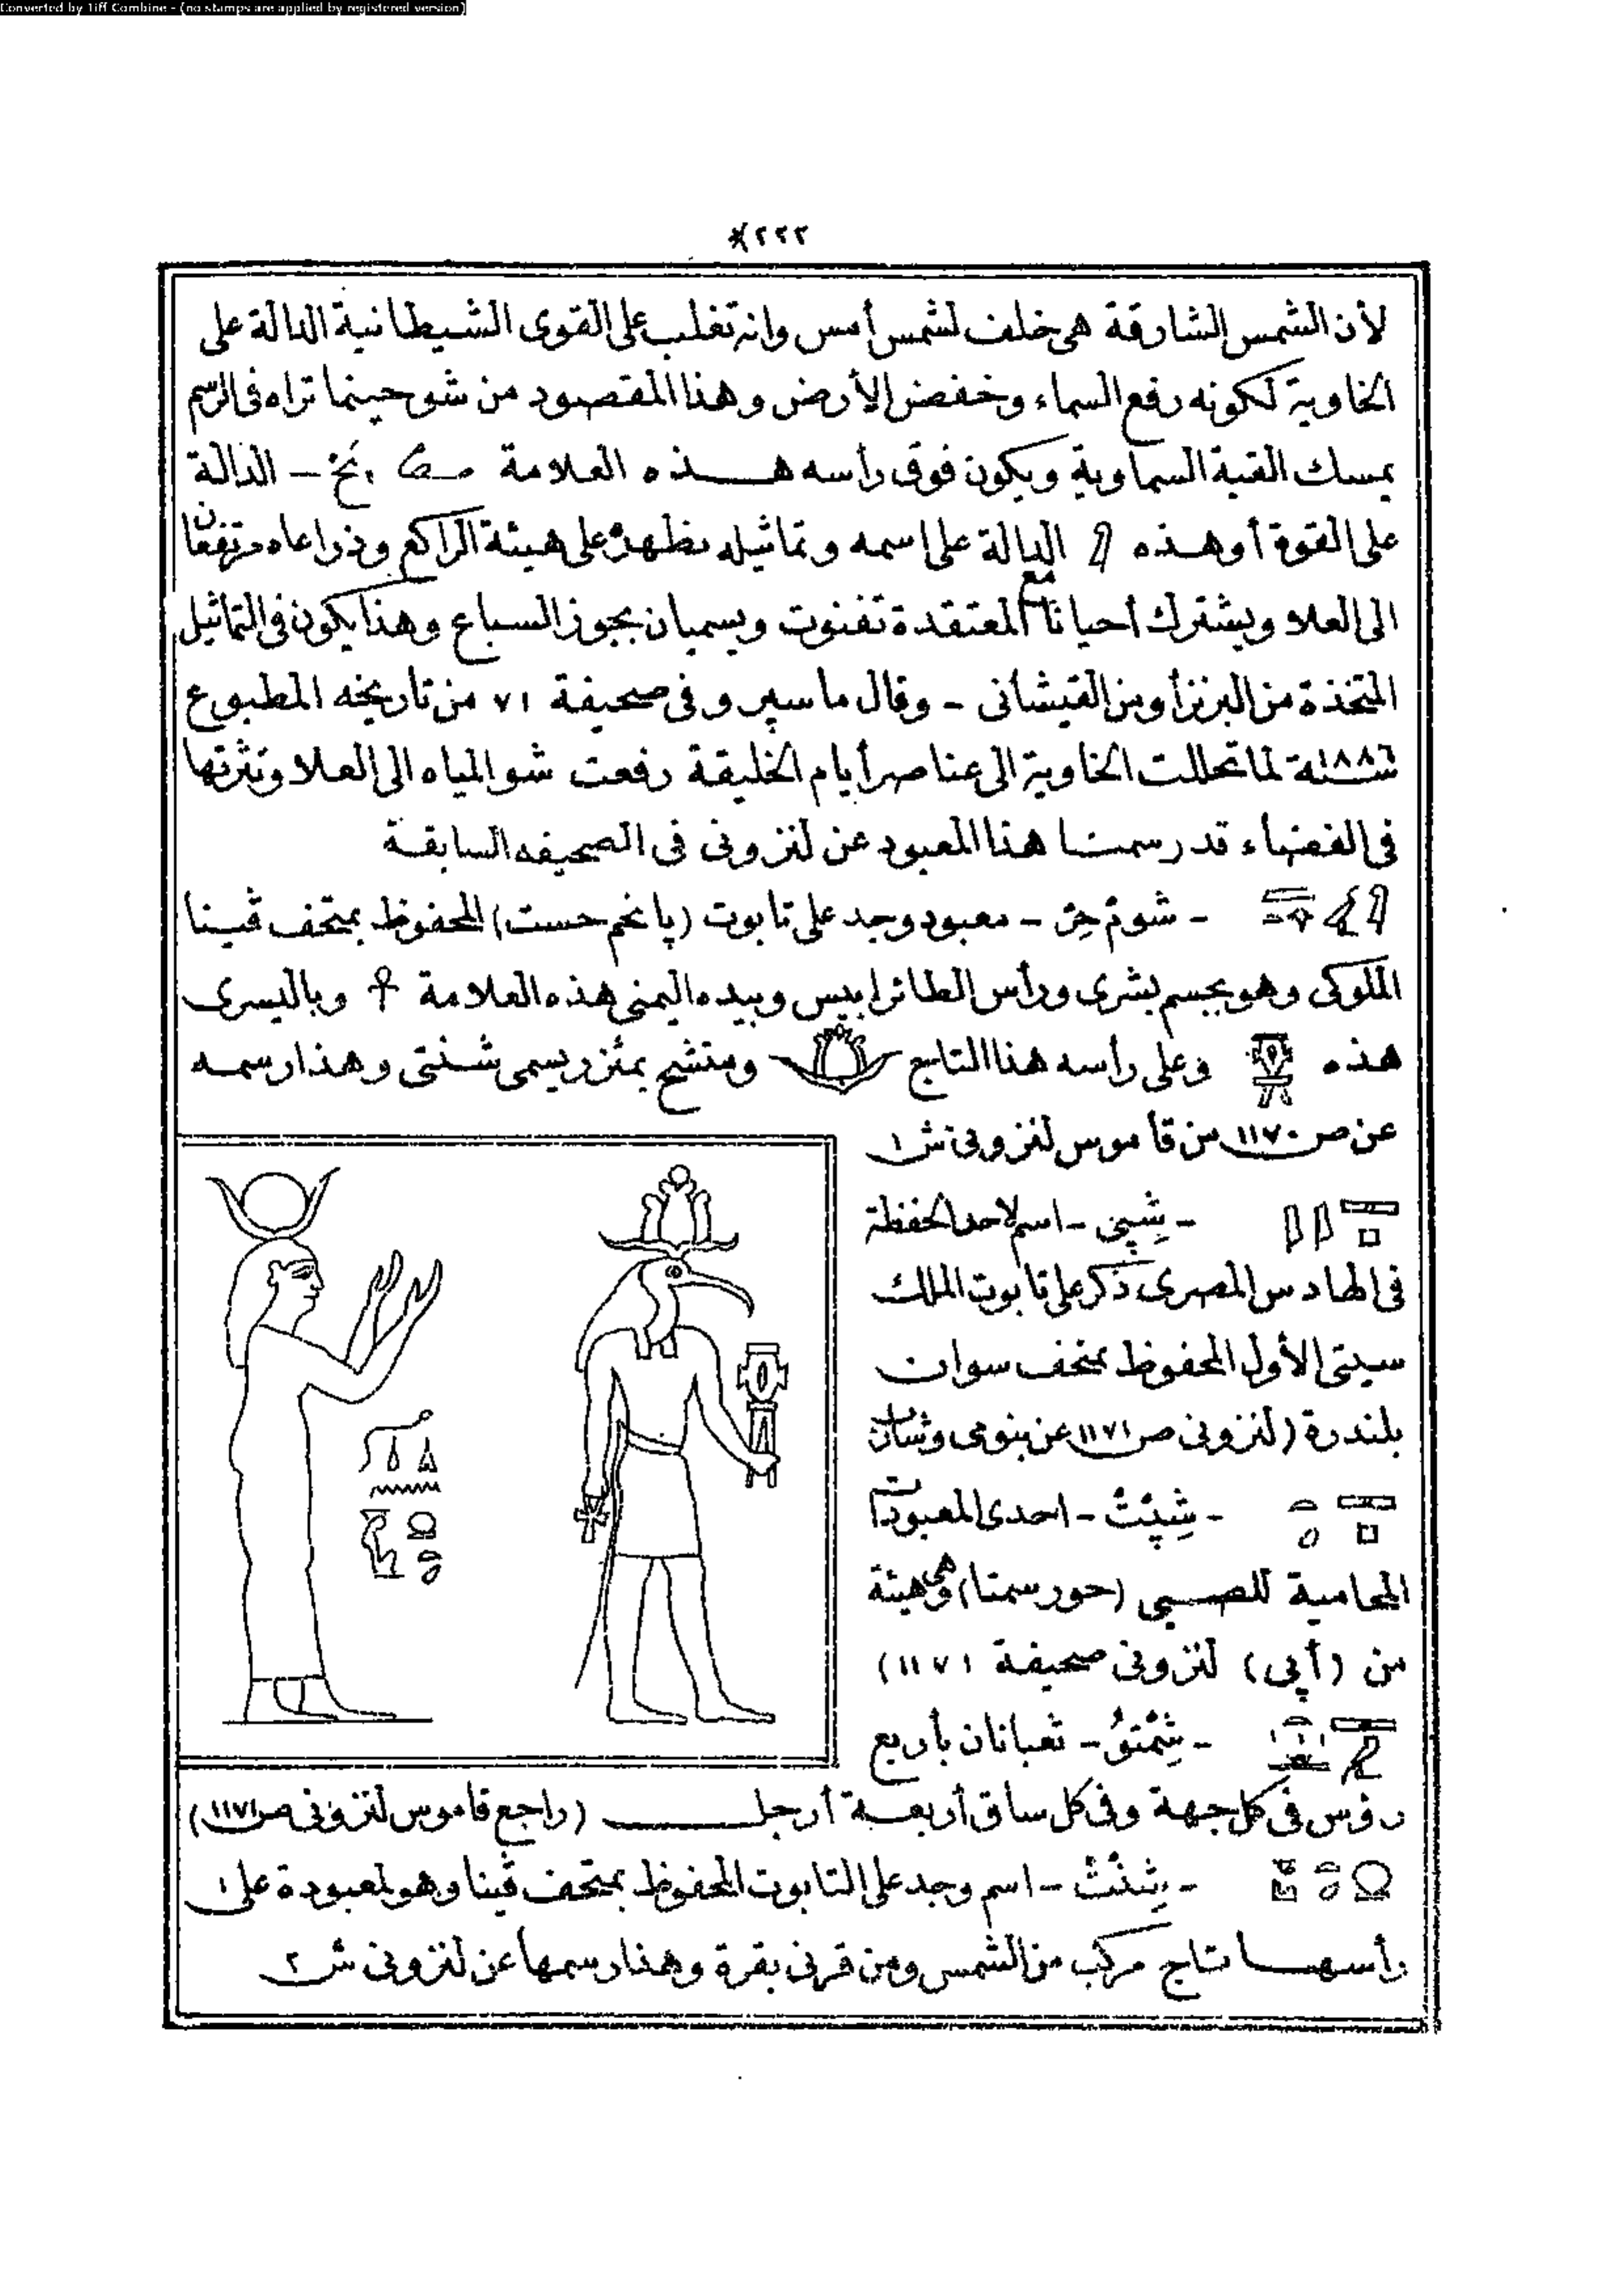 Converted by Tiff Combine - (no stamps are applied by registered version)
٢٢٢
لأن الشمس الشارقة هى خلف لشمس أمس وانه تغلب على القوى الشيطانية الدالة على
الخاوية لكونه رفع السماء وخفض الأرض وهذا المقصود من شو حينما تراه فى الرسم
يمسك القبة السماوية ويكون فوق رأسه هذه العلامة نخ - الدالة
على القوة أو هذه الدالة على اسمه وتماثيله تظهره على هيئة الراكع وذراعاه مرتفعان
الى العلاء ويشترك أحيانا مع المعتقدة تفنوت ويسميان بجوز السباع وهذا يكون فى التماثيل
المتخذة من البرنز أو من القيشانى - وقال ماسپرو فى صحيفة ٧١ من تاريخه المطبوع
سنة ١٨٨٦ لما تحللت الخاوية الى عناصر أيام الخليقة رفعت شو المياه الى العلا ونثرتها
فى الفضاء قد رسمنا هذا المعبود عن لنزونى فى الصحيفه السابقة
- شو مْ حِنْ - معبود وجد على تابوت (پانحم حست) المحفوظ بمتحف ڤينا
الملوكى وهو بجسم بشرى ورأس الطائر ابيس وبيده اليمنى هذه العلامة ☥ وباليسرى
هذه وعلى رأسه هذا التاج ومتشح بمئزر يسمى شنتى وهذا رسمه
عن ص ١١٧٠ من قاموس لنزونى ش ١
- شِپِى - اسم لاحد الحفظة
فى الهادس المصرى ذكر على تابوت الملك
سيتى الأول المحفوظ بمتحف سوان
بلندرة (لنزونى ص ١١٧١ عن بنومى وشارب
- شِپْتْ - احدى المعبودات
المحامية للصبى (حور سمتا) وهى هيئة
من (أپى) لنزونى صحيفة ١١٧١)
- شِمْتوُ - ثعبانان بأربع
رؤس فى كل جهة وفى كل ساق أربعة أرجل (راجع قاموس لنزونى ص ١١٧١)
- شِنْتْ - اسم وجد على التابوت المحفوظ بمتحف ڤينا وهو لمعبودة على
رأسها تاج مركب من الشمس ومن قرنى بقرة وهذا رسمها عن لنزونى ش ٢